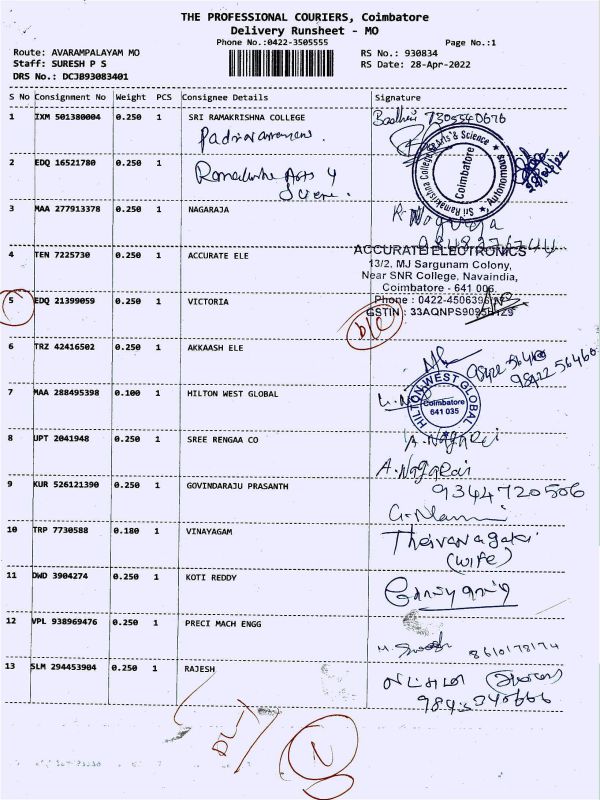 THE PROFESSIONAL COURIERS, Coimbatore
Delivery Runsheet - MO
Phone No.:0422-3505555
Page No.:1
Route: AVARAMPALAYAM MO
RS No.: 930834
Staff: SURESH P S
RS Date: 28-Apr-2022
DRS No.: DCJB93083401
S No Consignment No Weight PCS Consignee Details Signature
1 IXM 501380004 0.250 1 SRI RAMAKRISHNA COLLEGE
7305540676
Sri Ramakrishna College Arts & Science Autonomous
Coimbatore
2 EDQ 16521780 0.250 1
Arts &
3 MAA 277913378 0.250 1 NAGARAJA
4 TEN 7225730 0.250 1 ACCURATE ELE
ACCURATE ELECTRONICS
13/2, MJ Sargunam Colony,
Near SNR College, Navaindia,
Coimbatore - 641 006.
5 EDQ 21399059 0.250 1 VICTORIA
Phone : 0422-4506396
GSTIN : 33AQNPS9095
D/C
6 TRZ 42416502 0.250 1 AKKAASH ELE
98422 56460
7 MAA 288495398 0.100 1 HILTON WEST GLOBAL
HILTON WEST GLOBAL
Coimbatore
641 035
8 JPT 2041948 0.250 1 SREE RENGAA CO
A. Nagaraj
9 KUR 526121390 0.250 1 GOVINDARAJU PRASANTH
A. Nagaraj
9344720506
10 TRP 7730588 0.180 1 VINAYAGAM
(wife)
11 DWD 3904274 0.250 1 KOTI REDDY
12 VPL 938969476 0.250 1 PRECI MACH ENGG
8610178174
13 SLM 294453904 0.250 1 RAJESH